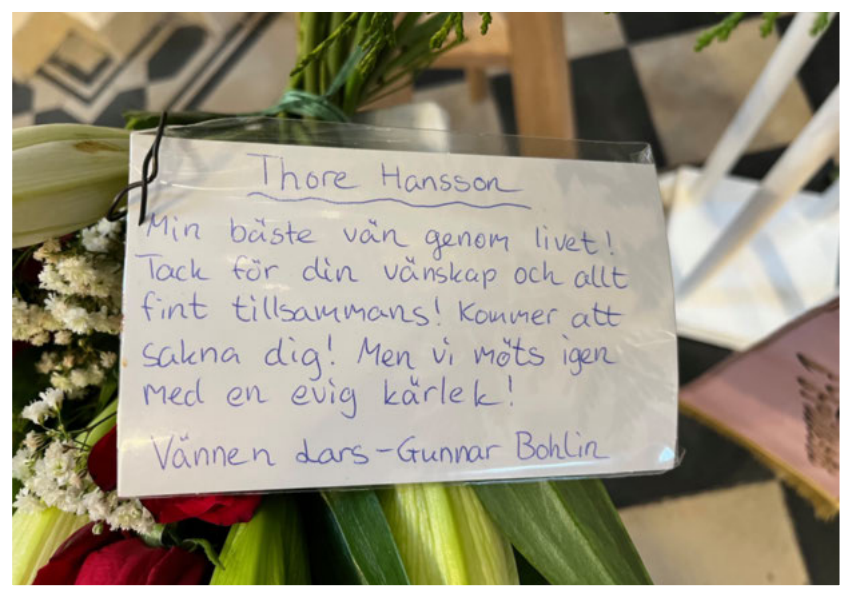 Thore Hansson
Min bäste vän genom livet!
Tack för din vänskap och allt
fint tillsammans! Kommer att
sakna dig! Men vi möts igen
med en evig kärlek!
Vännen Lars-Gunnar Bohlin